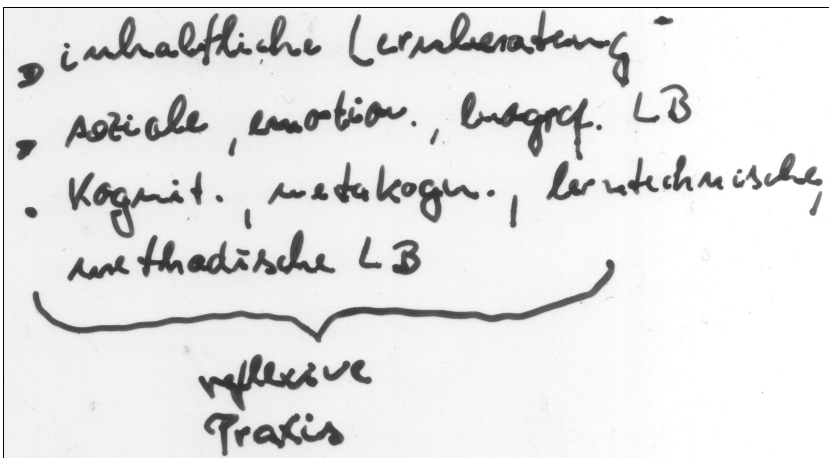 • inhaltliche Lernberatung -
• soziale, emotion., biograf. LB
• Kognit., metakogn., lerntechnische,
methodische LB
reflexive
Praxis